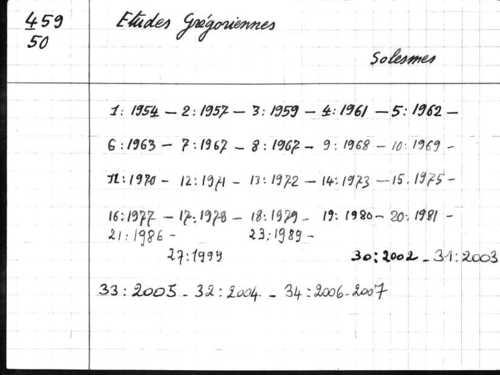 459
50
Etudes Grégoriennes
Solesmes
1: 1954 - 2: 1957 - 3: 1959 - 4: 1961 - 5: 1962 -
6: 1963 - 7: 1967 - 8: 1967 - 9: 1968 - 10: 1969 -
11: 1970 - 12: 1971 - 13: 1972 - 14: 1973 - 15. 1975 -
16: 1977 - 17: 1978 - 18: 1979 - 19: 1980 - 20: 1981 -
21: 1986 - 23: 1989 -
27: 1999 30: 2002 - 31: 2003
33: 2005 - 32: 2004 - 34: 2006-2007